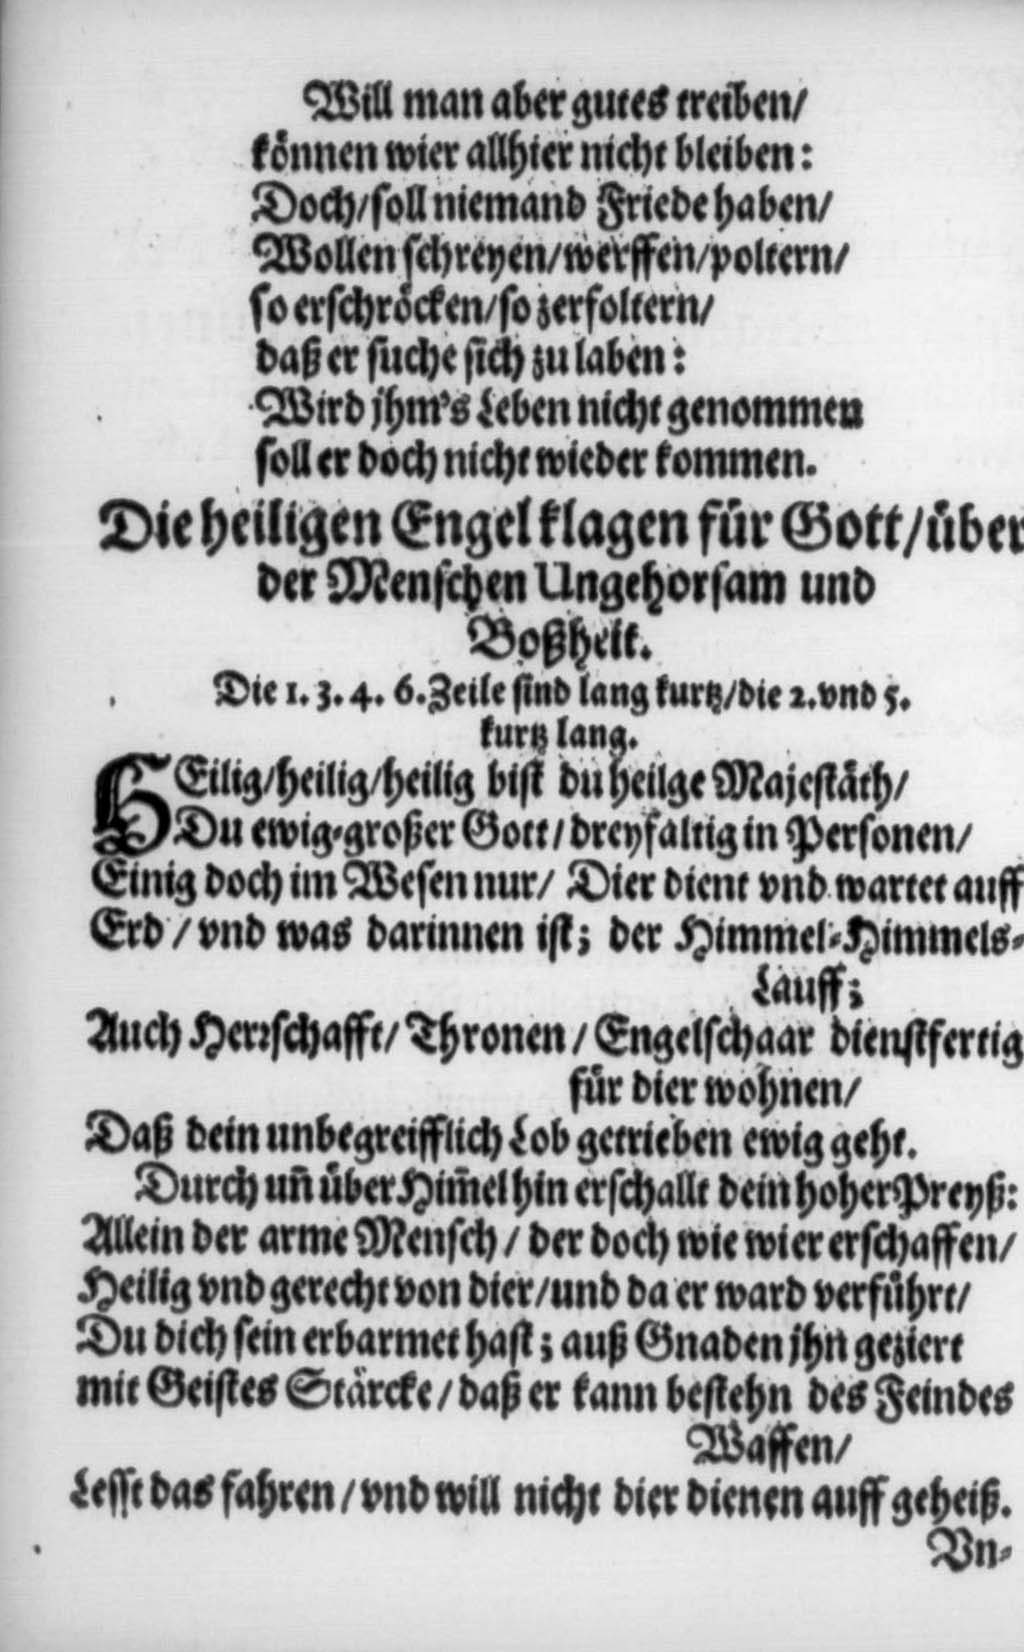 Will man aber gutes treiben/
können wier allhier nicht bleiben:
Doch/soll niemand Friede haben/
Wollen schreyen/werffen/poltern/
so erschröcken/so zerfoltern/
daß er suche sich zu laben:
Wird jhm's Leben nicht genommen
soll er doch nicht wieder kommen.
Die heiligen Engel klagen für Gott/über
der Menschen Ungehorsam und
Boßheit.
Die 1. 3. 4. 6. Zeile sind lang kurtz/die 2. vnd 5.
kurtz lang.
HEilig/heilig/heilig bist du heilge Majestäth/
Du ewig-großer Gott/dreyfaltig in Personen/
Einig doch im Wesen nur/ Dier dient vnd wartet auff
Erd/ vnd was darinnen ist; der Himmel-Himmels-
Lauff;
Auch Herrschafft/ Thronen/ Engelschaar dienstfertig
für dier wohnen/
Daß dein unbegreifflich Lob getrieben ewig geht.
Durch uñ über Him̃el hin erschallt dein hoher Preyß:
Allein der arme Mensch/ der doch wie wier erschaffen/
Heilig vnd gerecht von dier/und da er ward verführt/
Du dich sein erbarmet hast; auß Gnaden jhn geziert
mit Geistes Stärcke/daß er kann bestehn des Feindes
Waffen/
Lesst das fahren/vnd will nicht dier dienen auff geheiß.
Vn-